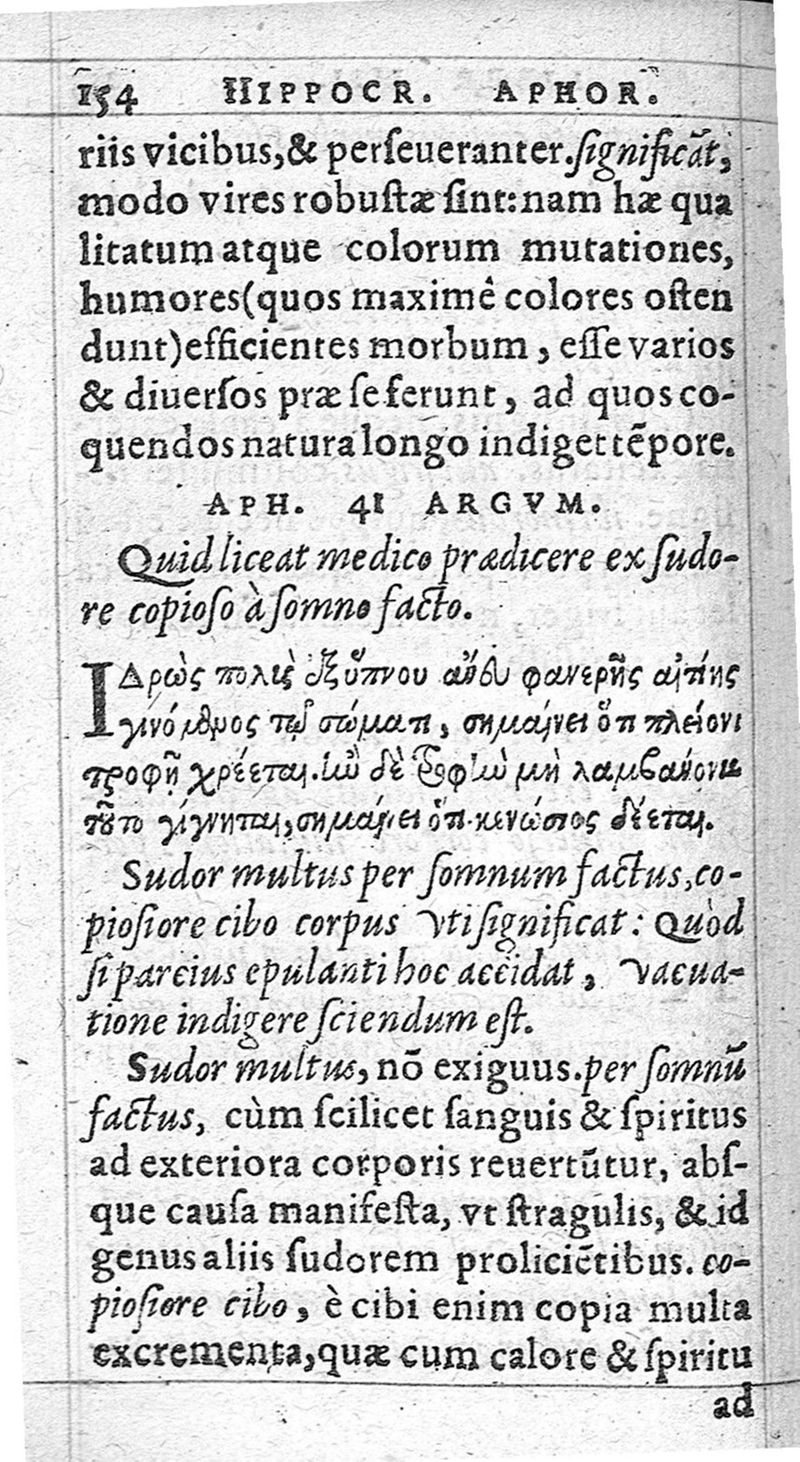 154 HIPPOCR. APHOR.
riis vicibus,& perſeueranter.ſignificāt,
modo vires robuſtæ ſint:nam hæ qua
litatum atque colorum mutationes,
humores(quos maximê colores oſten
dunt)efficientes morbum, eſſe varios
& diuerſos præ ſe ferunt, ad quos co-
quendos natura longo indiget tēpore.
APH. 41 ARGVM.
Quid liceat medico prædicere ex ſudo-
re copioſo à ſomno facto.
ΙΔρὼς πολὺς ἐξ ὕπνου ἄνευ φανερῆς αἰτίης
γινόμενος τῷ σώματι, σημαίνει ὅτι πλείονι
τροφῇ χρέεται.ἢν δὲ τροφὴν μὴ λαμβάνοντι
τοῦτο γίγνηται,σημαίνει ὅτι κενώσιος δέεται.
Sudor multus per ſomnum factus,co-
pioſiore cibo corpus vti ſignificat: Quòd
ſi parcius epulanti hoc accidat, vacua-
tione indigere ſciendum eſt.
Sudor multus, nō exiguus.per ſomnū
factus, cùm ſcilicet ſanguis & ſpiritus
ad exteriora corporis reuertūtur, abſ-
que cauſa manifeſta, vt ſtragulis, & id
genus aliis ſudorem proliciētibus. co-
pioſiore cibo, è cibi enim copia multa
excrementa,quæ cum calore & ſpiritu
ad